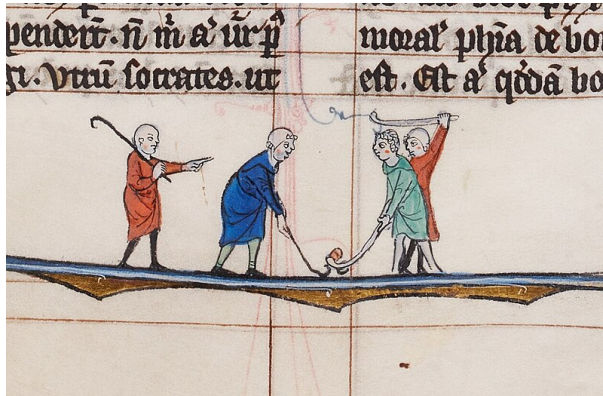 pendert̄. n̄ m̄ a᷒ ur̄ p̄
gi. vtrū socrates. ut
moral᷒ ph̄ia de bo
est. Est a᷒ qd̄ā bo